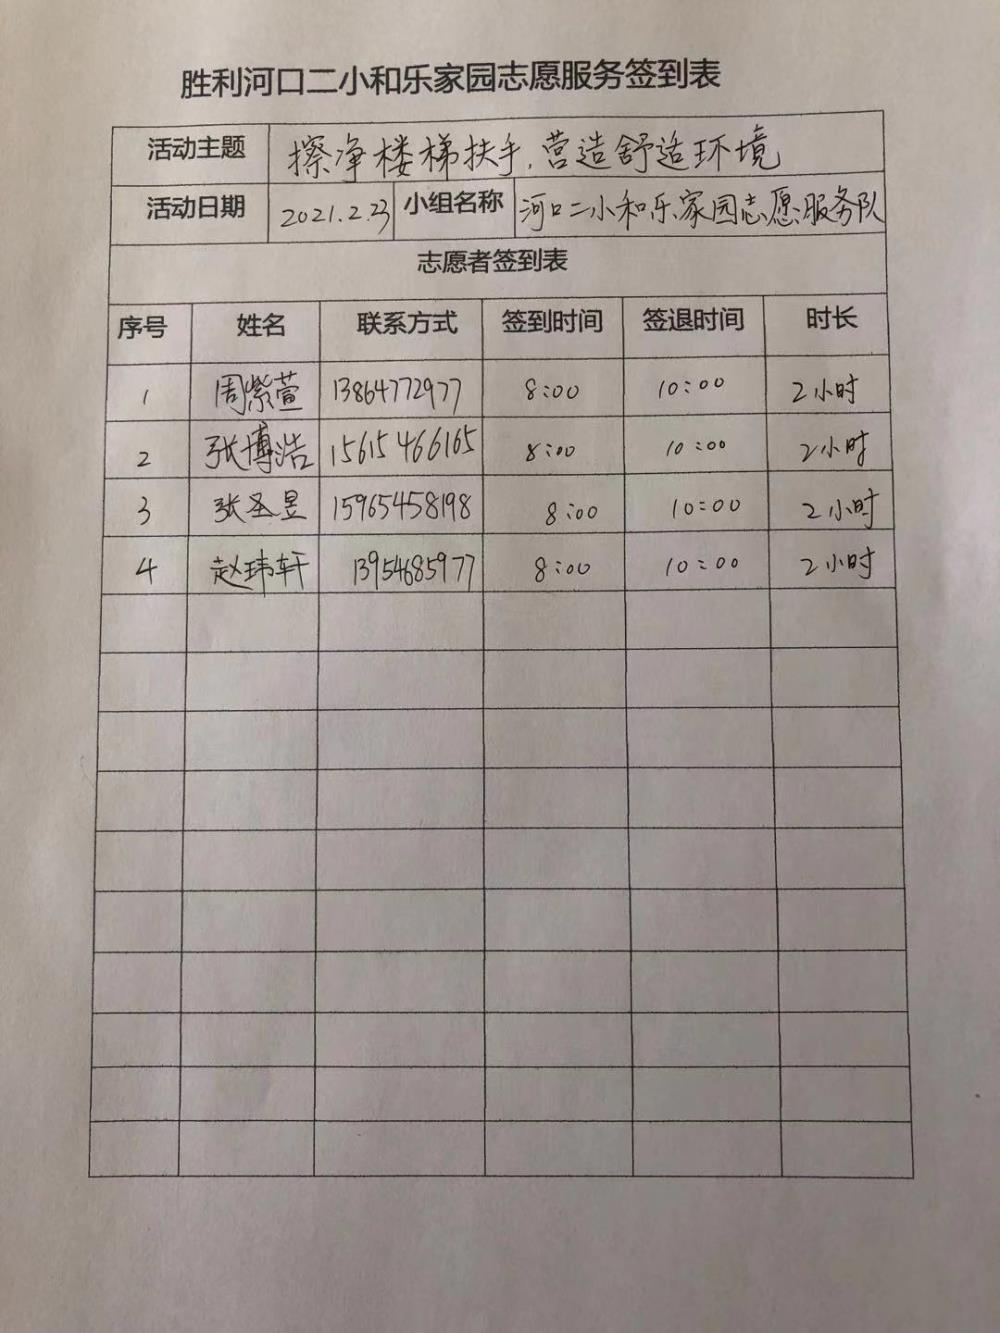 胜利河口二小和乐家园志愿服务签到表
活动主题 擦净楼梯扶手,营造舒适环境
活动日期 2021.2.23 小组名称 河口二小和乐家园志愿服务队
志愿者签到表
序号 姓名 联系方式 签到时间 签退时间 时长
1 周紫萱 13864772977 8:00 10:00 2小时
2 张博浩 15615466165 8:00 10:00 2小时
3 张圣昱 15965458198 8:00 10:00 2小时
4 赵玮轩 13954685977 8:00 10:00 2小时